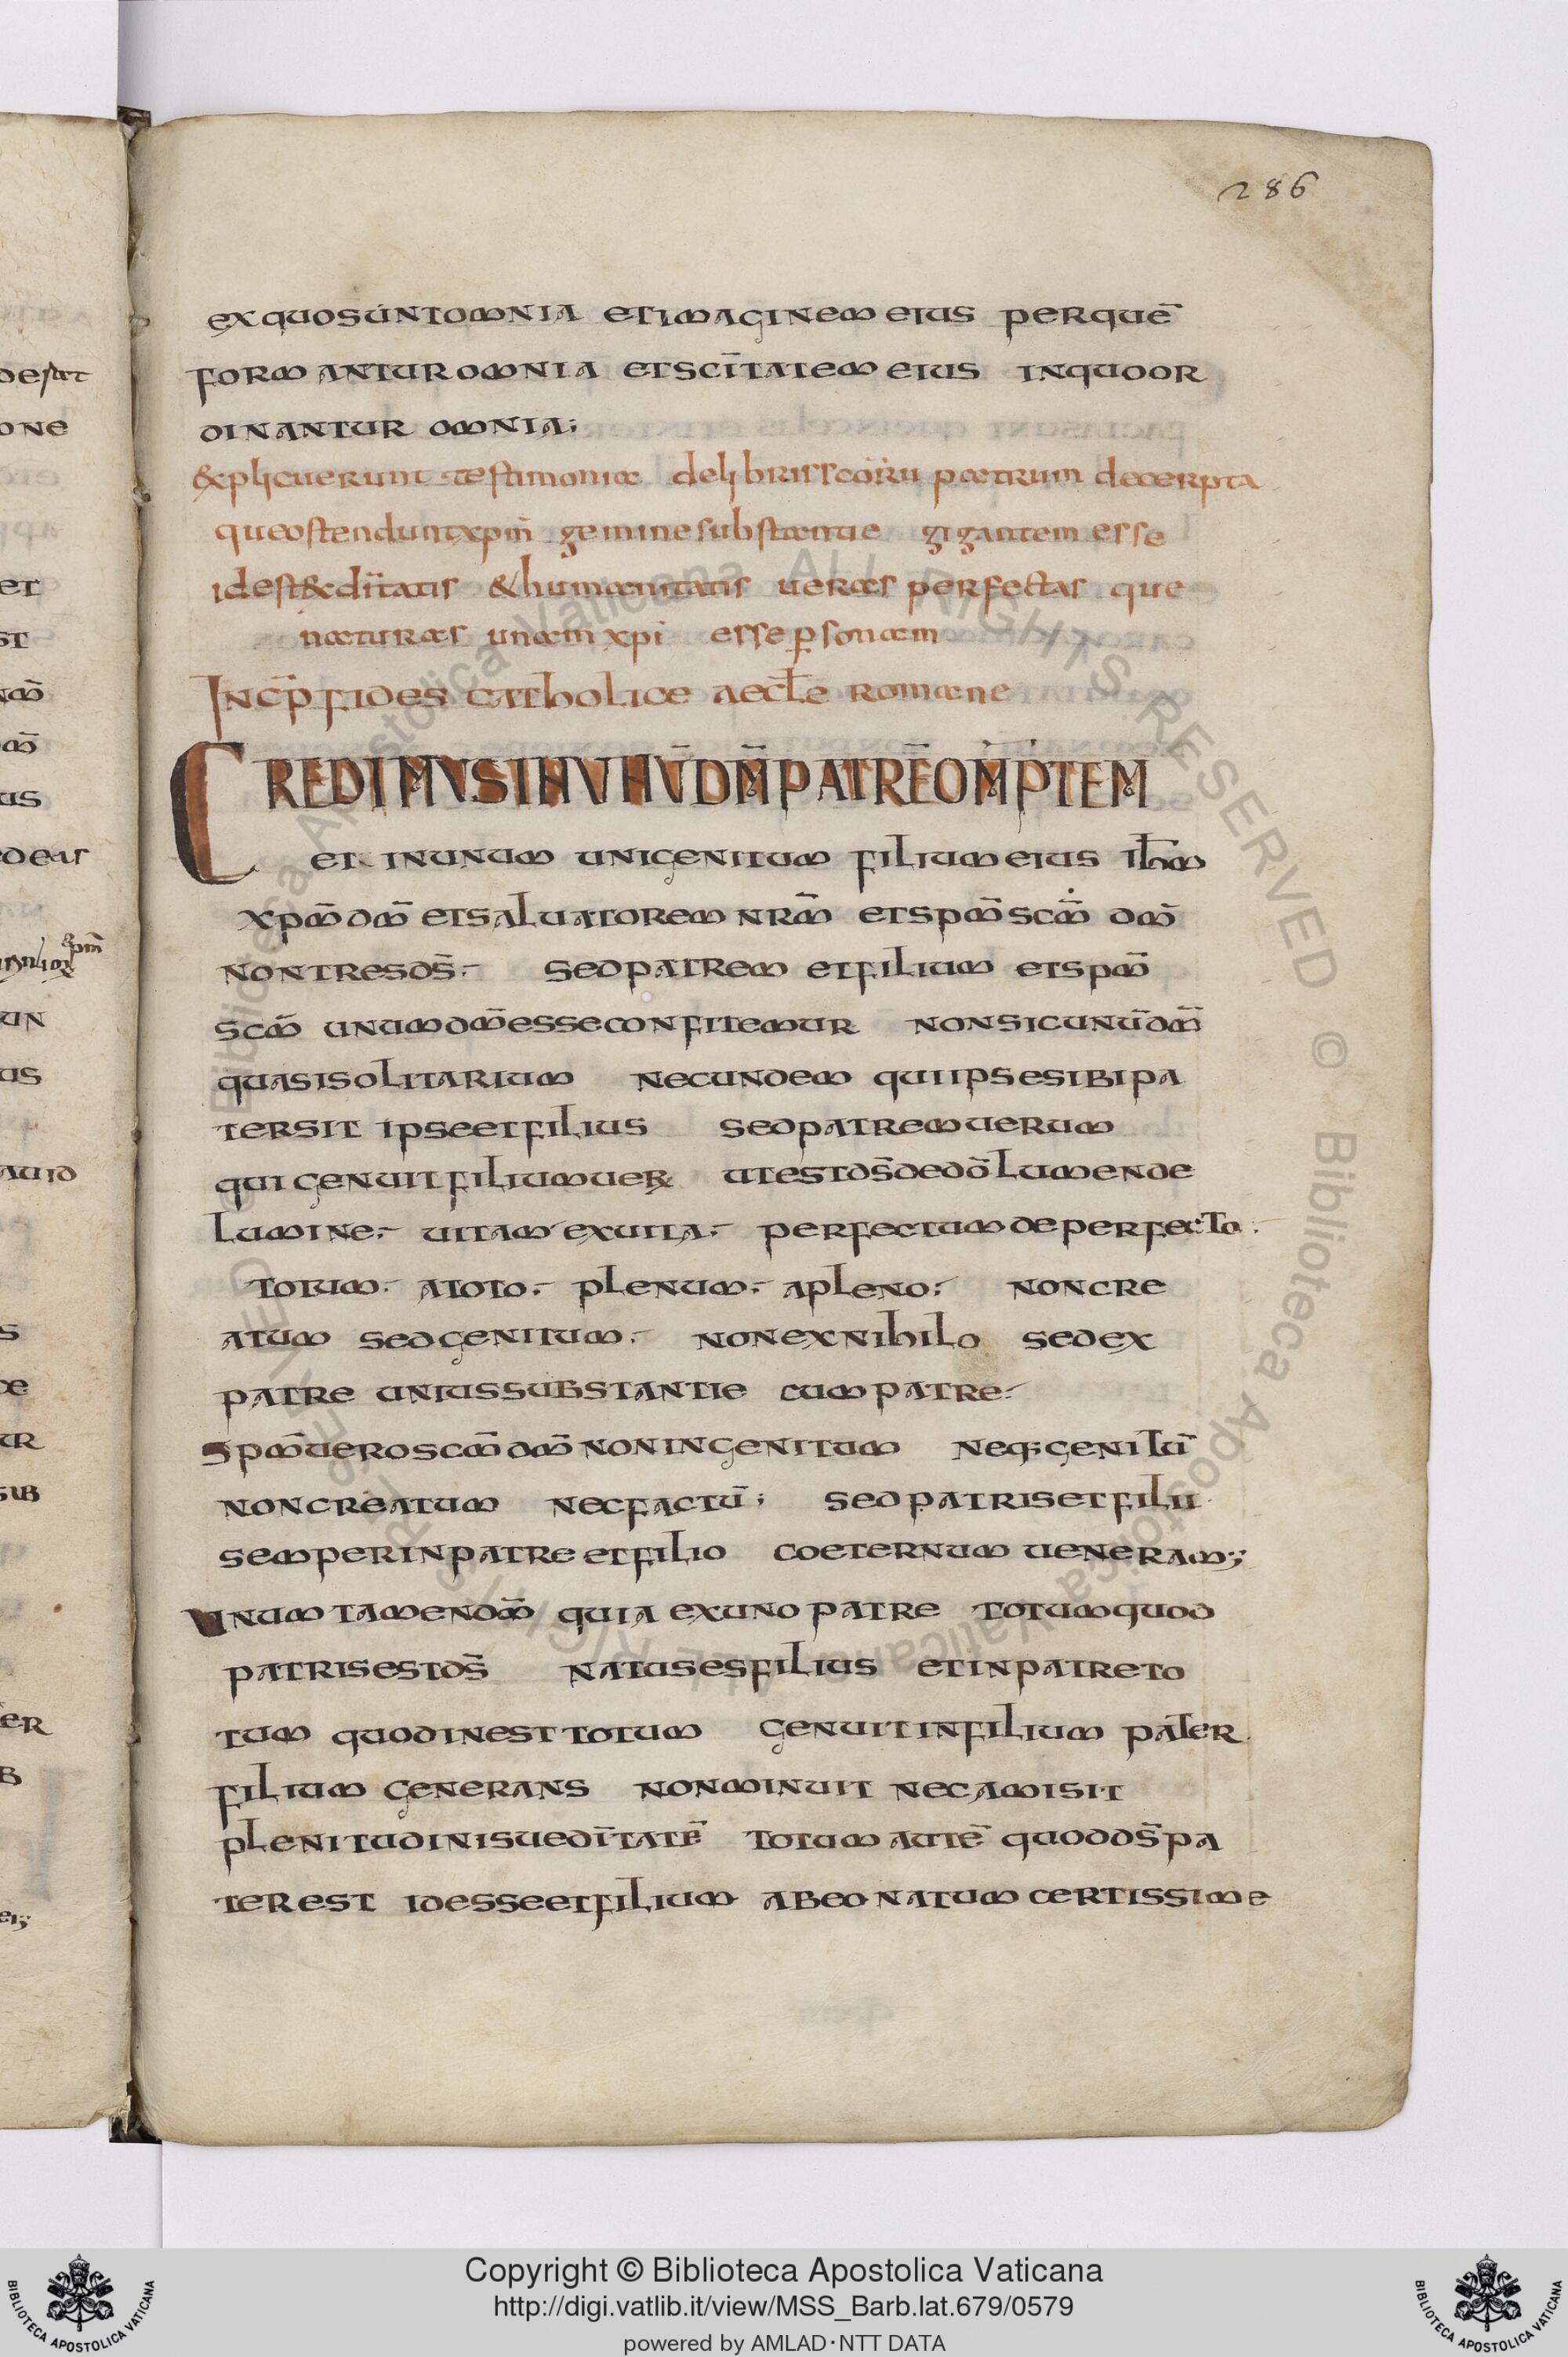 286
ex quo sunt omnia et imaginem eius per quē
formantur omnia et scītatem eius in quo or
dinantur omnia;
Explicuerunt testimonia de libris scōrū patrum decerpta
que ostendunt xpm̄ gemine substantie gigantem esse
id est & dītatis & humanitatis veras perfectas que
naturas unam xpi esse ꝑsonam
Incp̄ fides catholice aeccl̄e romane
CREDIMUS IN UNŪ DM̄ PATRĒ OMP̄TEM
et in unum unigenitum filium eius ihm̄
xpm̄ dm̄ et saluatorem nrm̄ et spm̄ scm̄ dm̄
non tres ds̄. sed patrem et filium et spm̄
scm̄ unum dm̄ esse confitemur non sic unū dm̄
quasi solitarium nec undem qui ipse sibi pa
ter sit ipse et filius sed patrem uerum
qui genuit filium ueꝝ ut est ds̄ de dō lumen de
lumine. uitam ex uita. perfectum de perfecto.
totum. a toto. plenum. a pleno. non cre
atum sed genitum. non ex nihilo sed ex
patre unius substantie cum patre.
Spm̄ uero scm̄ dm̄ non ingenitum neq; genitū
non creatum nec factū; sed patris et filii
semper in patre et filio coeternum ueneram;
Unum tamen dm̄ quia ex uno patre totum quod
patris est ds̄ natus es filius et in patre to
tum quod inest totum genuit in filium pater
filium generans non minuit nec amisit
plenitudini sue dītatē totum autē quod ds̄ pa
ter est id esse et filium ab eo natum certissime
Copyright © Biblioteca Apostolica Vaticana
http://digi.vatlib.it/view/MSS_Barb.lat.679/0579
powered by AMLAD·NTT DATA
BIBLIOTECA APOSTOLICA VATICANA
BIBLIOTECA APOSTOLICA VATICANA